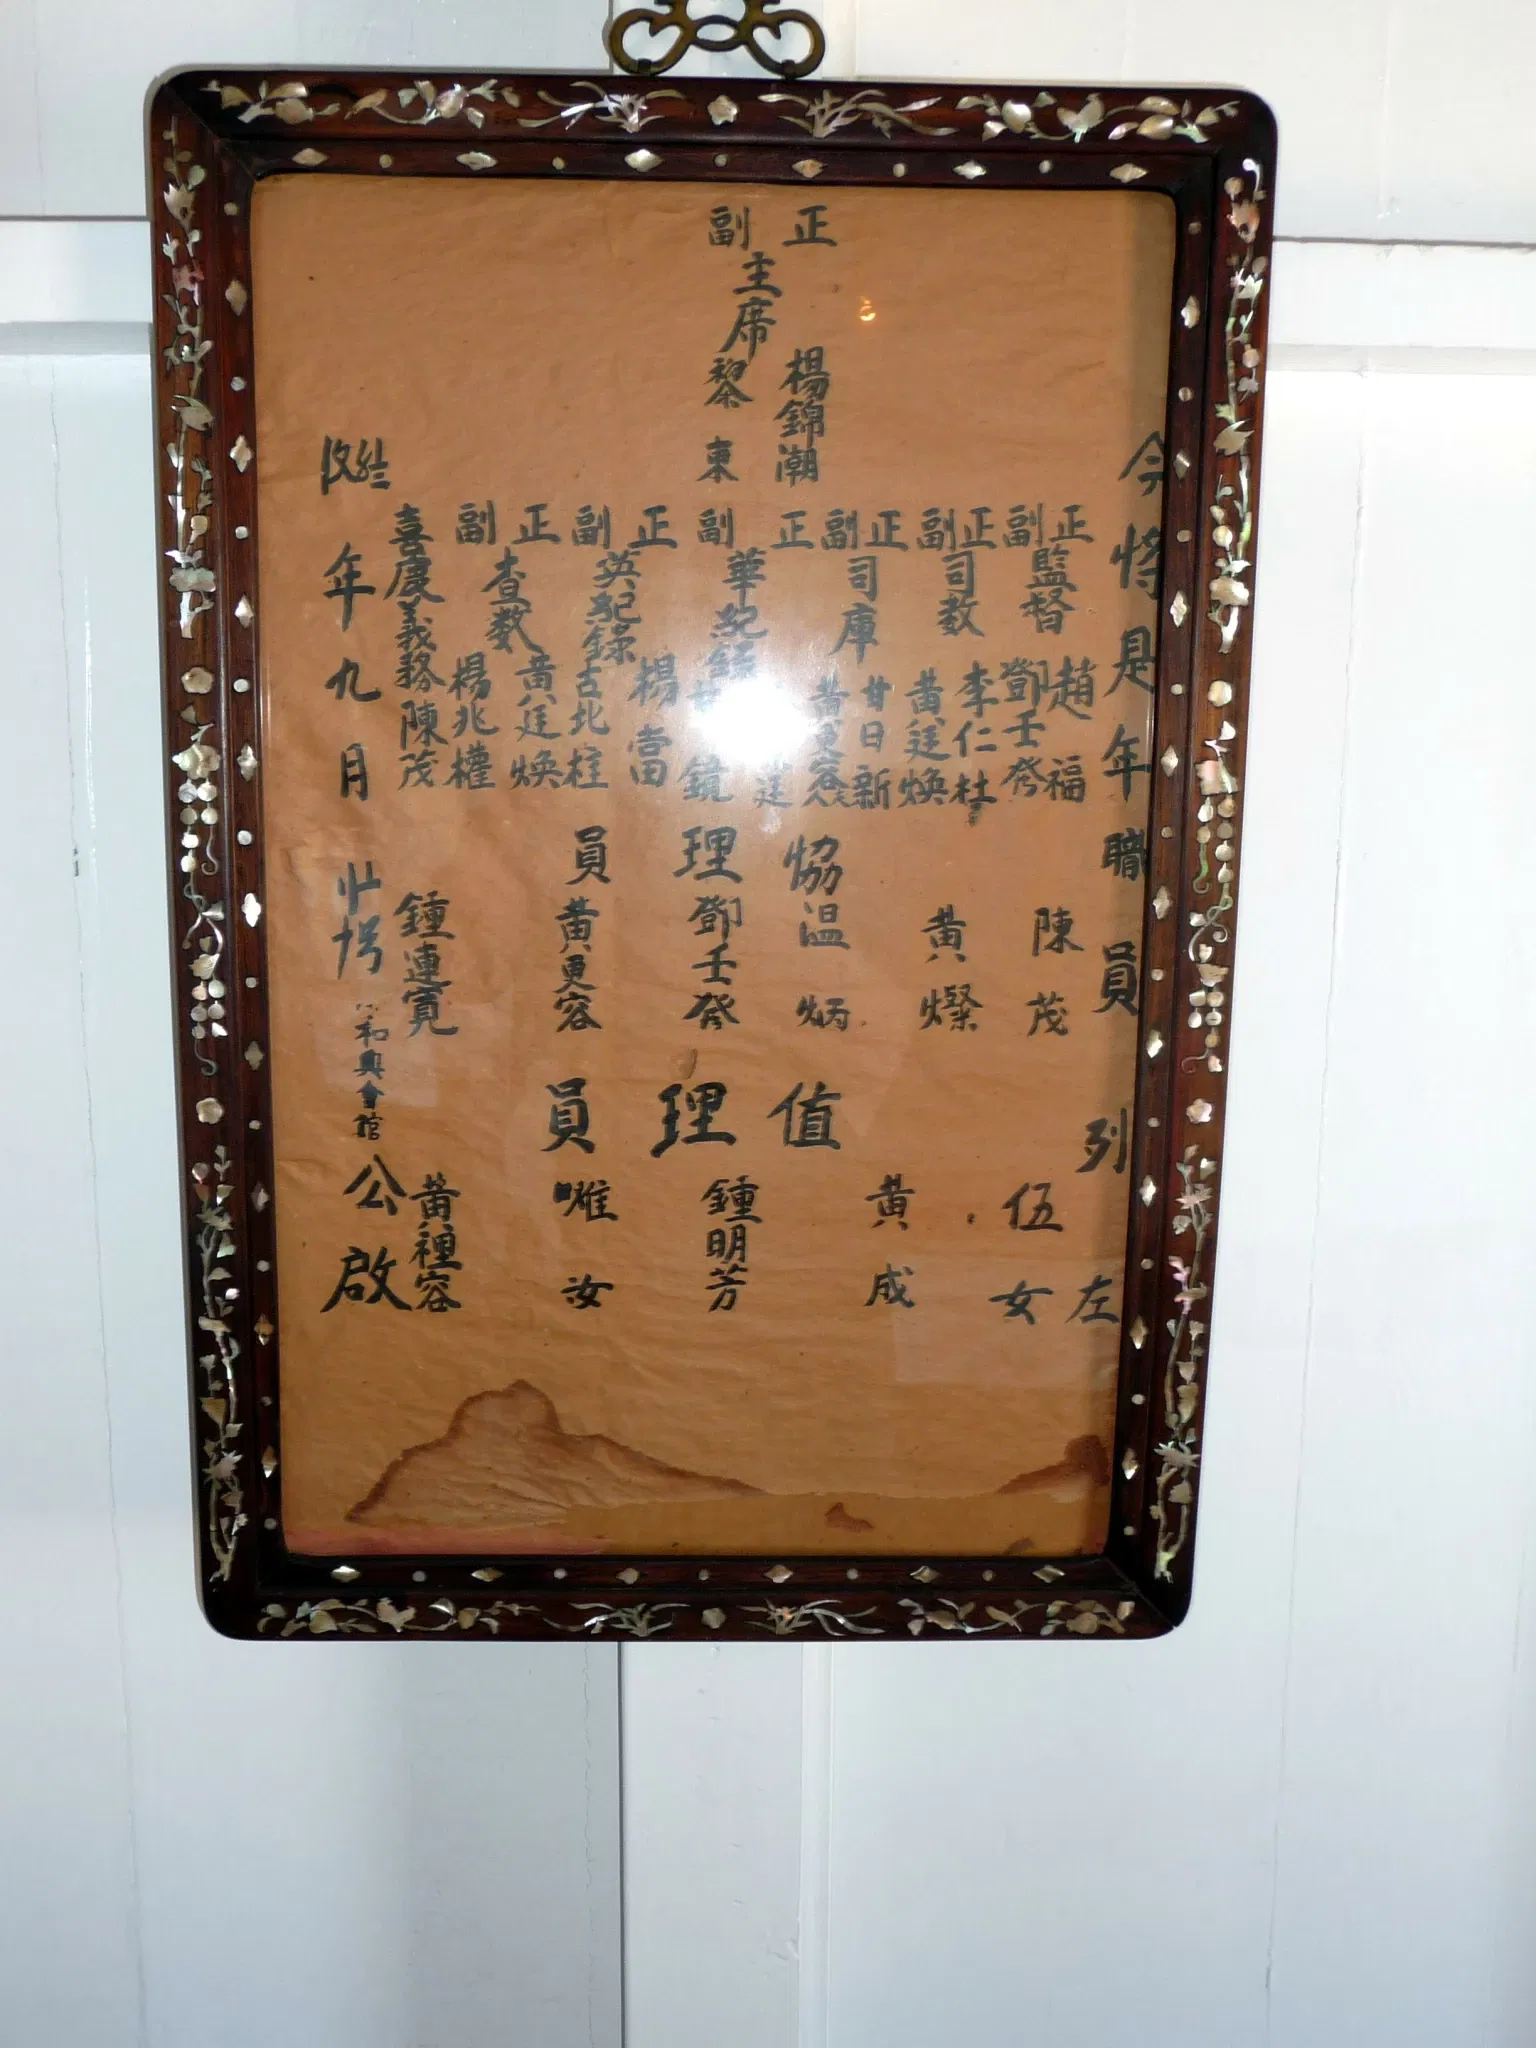 今將是年職員列左
正 副 主席
楊錦潮
黎東
正 副 監督
趙福
鄧壬發
正 副 司数
李仁杜
黃廷煥
正 副 司庫
甘日新
黃更容
正 副 華紀錄
鏡
正 副 英紀錄
楊當
古北柱
正 副 查数
黃廷煥
楊兆權
喜慶義務陳茂
協理員
陳茂
黃燦
温炳
鄧壬發
黃更容
鍾連寬
值理員
伍女
黃成
鍾明芳
嘥汝
黃種容
年九月
和興會館
公啟